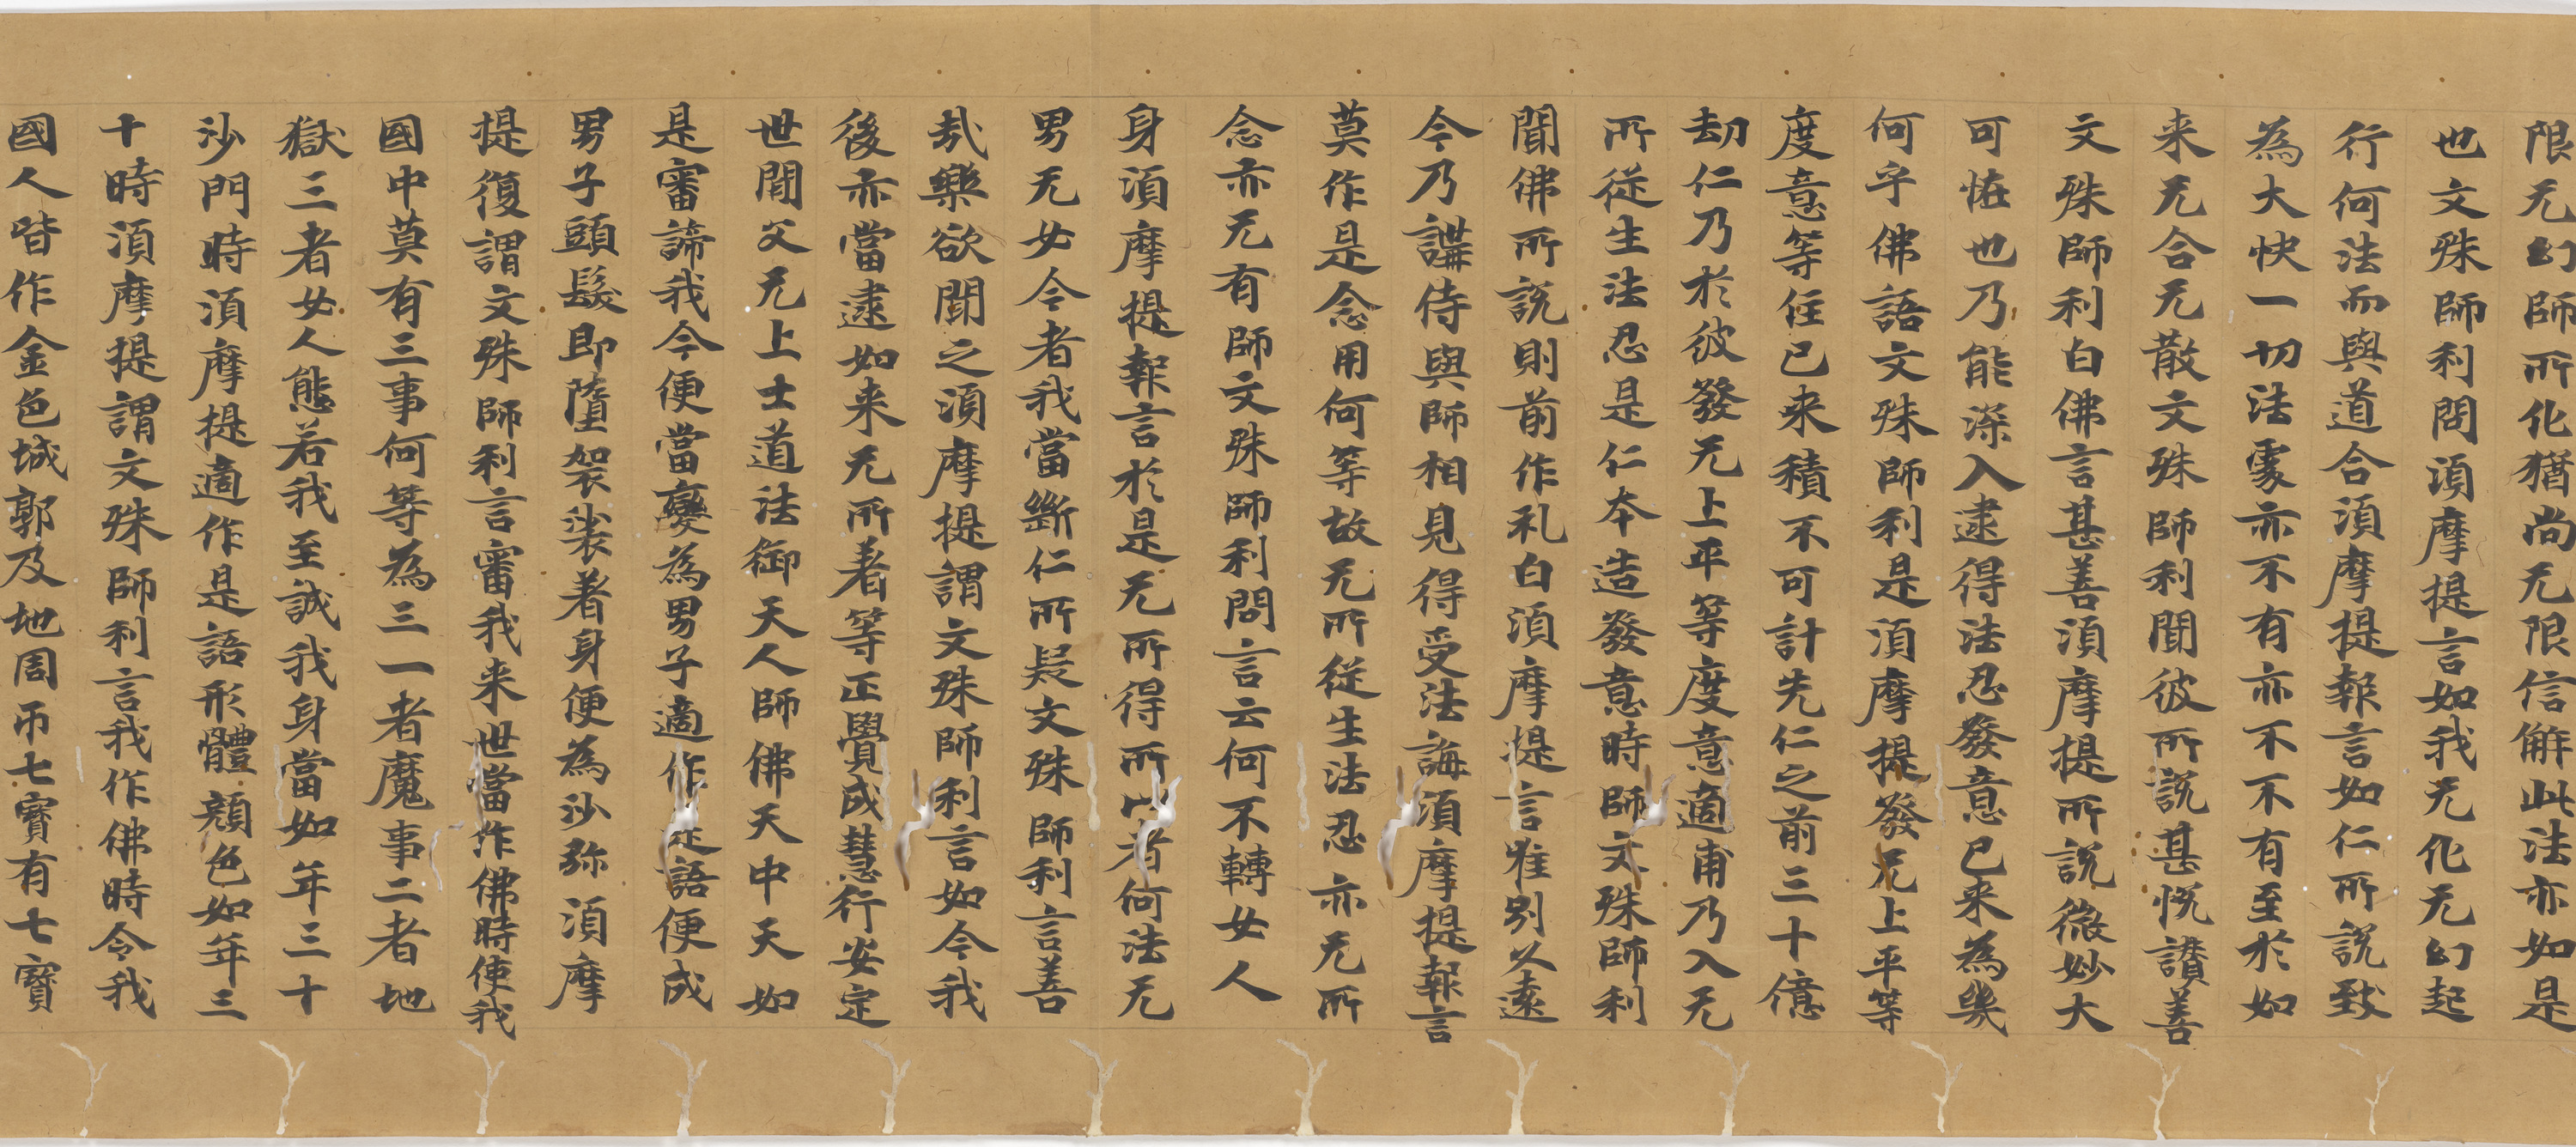 限无幻師所化猶尚无限信解此法亦如是
也文殊師利問須摩提言如我无化无幻起
行何法而與道合須摩提報言如仁所說致
為大快一切法處亦不有亦不不有至於如
来无合无散文殊師利聞彼所說甚悅讃善
文殊師利白佛言甚善須摩提所說微妙大
可恠也乃能深入逮得法忍發意已来為幾
何乎佛語文殊師利是須摩提發无上平等
度意等住已来積不可計先仁之前三十億
劫仁乃於彼發无上平等度意適甫乃入无
所従生法忍是仁夲造發意時師文殊師利
聞佛所說則前作礼白須摩提言唯別久遠
今乃講侍與師相見得受法誨須摩提報言
莫作是念用何等故无所従生法忍亦无所
念亦无有師文殊師利問言云何不轉女人
身須摩提報言於是无所得所以者何法无
男无女今者我當斷仁所疑文殊師利言善
㢤樂欲聞之須摩提謂文殊師利言如今我
後亦當逮如来无所著等正覺成慧行安定
世閒父无上士道法御天人師佛天中天如
是審諦我今便當變為男子適作是語便成
男子頭髮即墮袈裟著身便為沙弥須摩
提復謂文殊師利言審我来世當作佛時使我
國中莫有三事何等為三一者魔事二者地
獄三者女人態若我至誠我身當如年三十
沙門時須摩提適作是語形體顏色如年三
十時須摩提謂文殊師利言我作佛時令我
國人皆作金色城郭及地周帀七寶有七寶